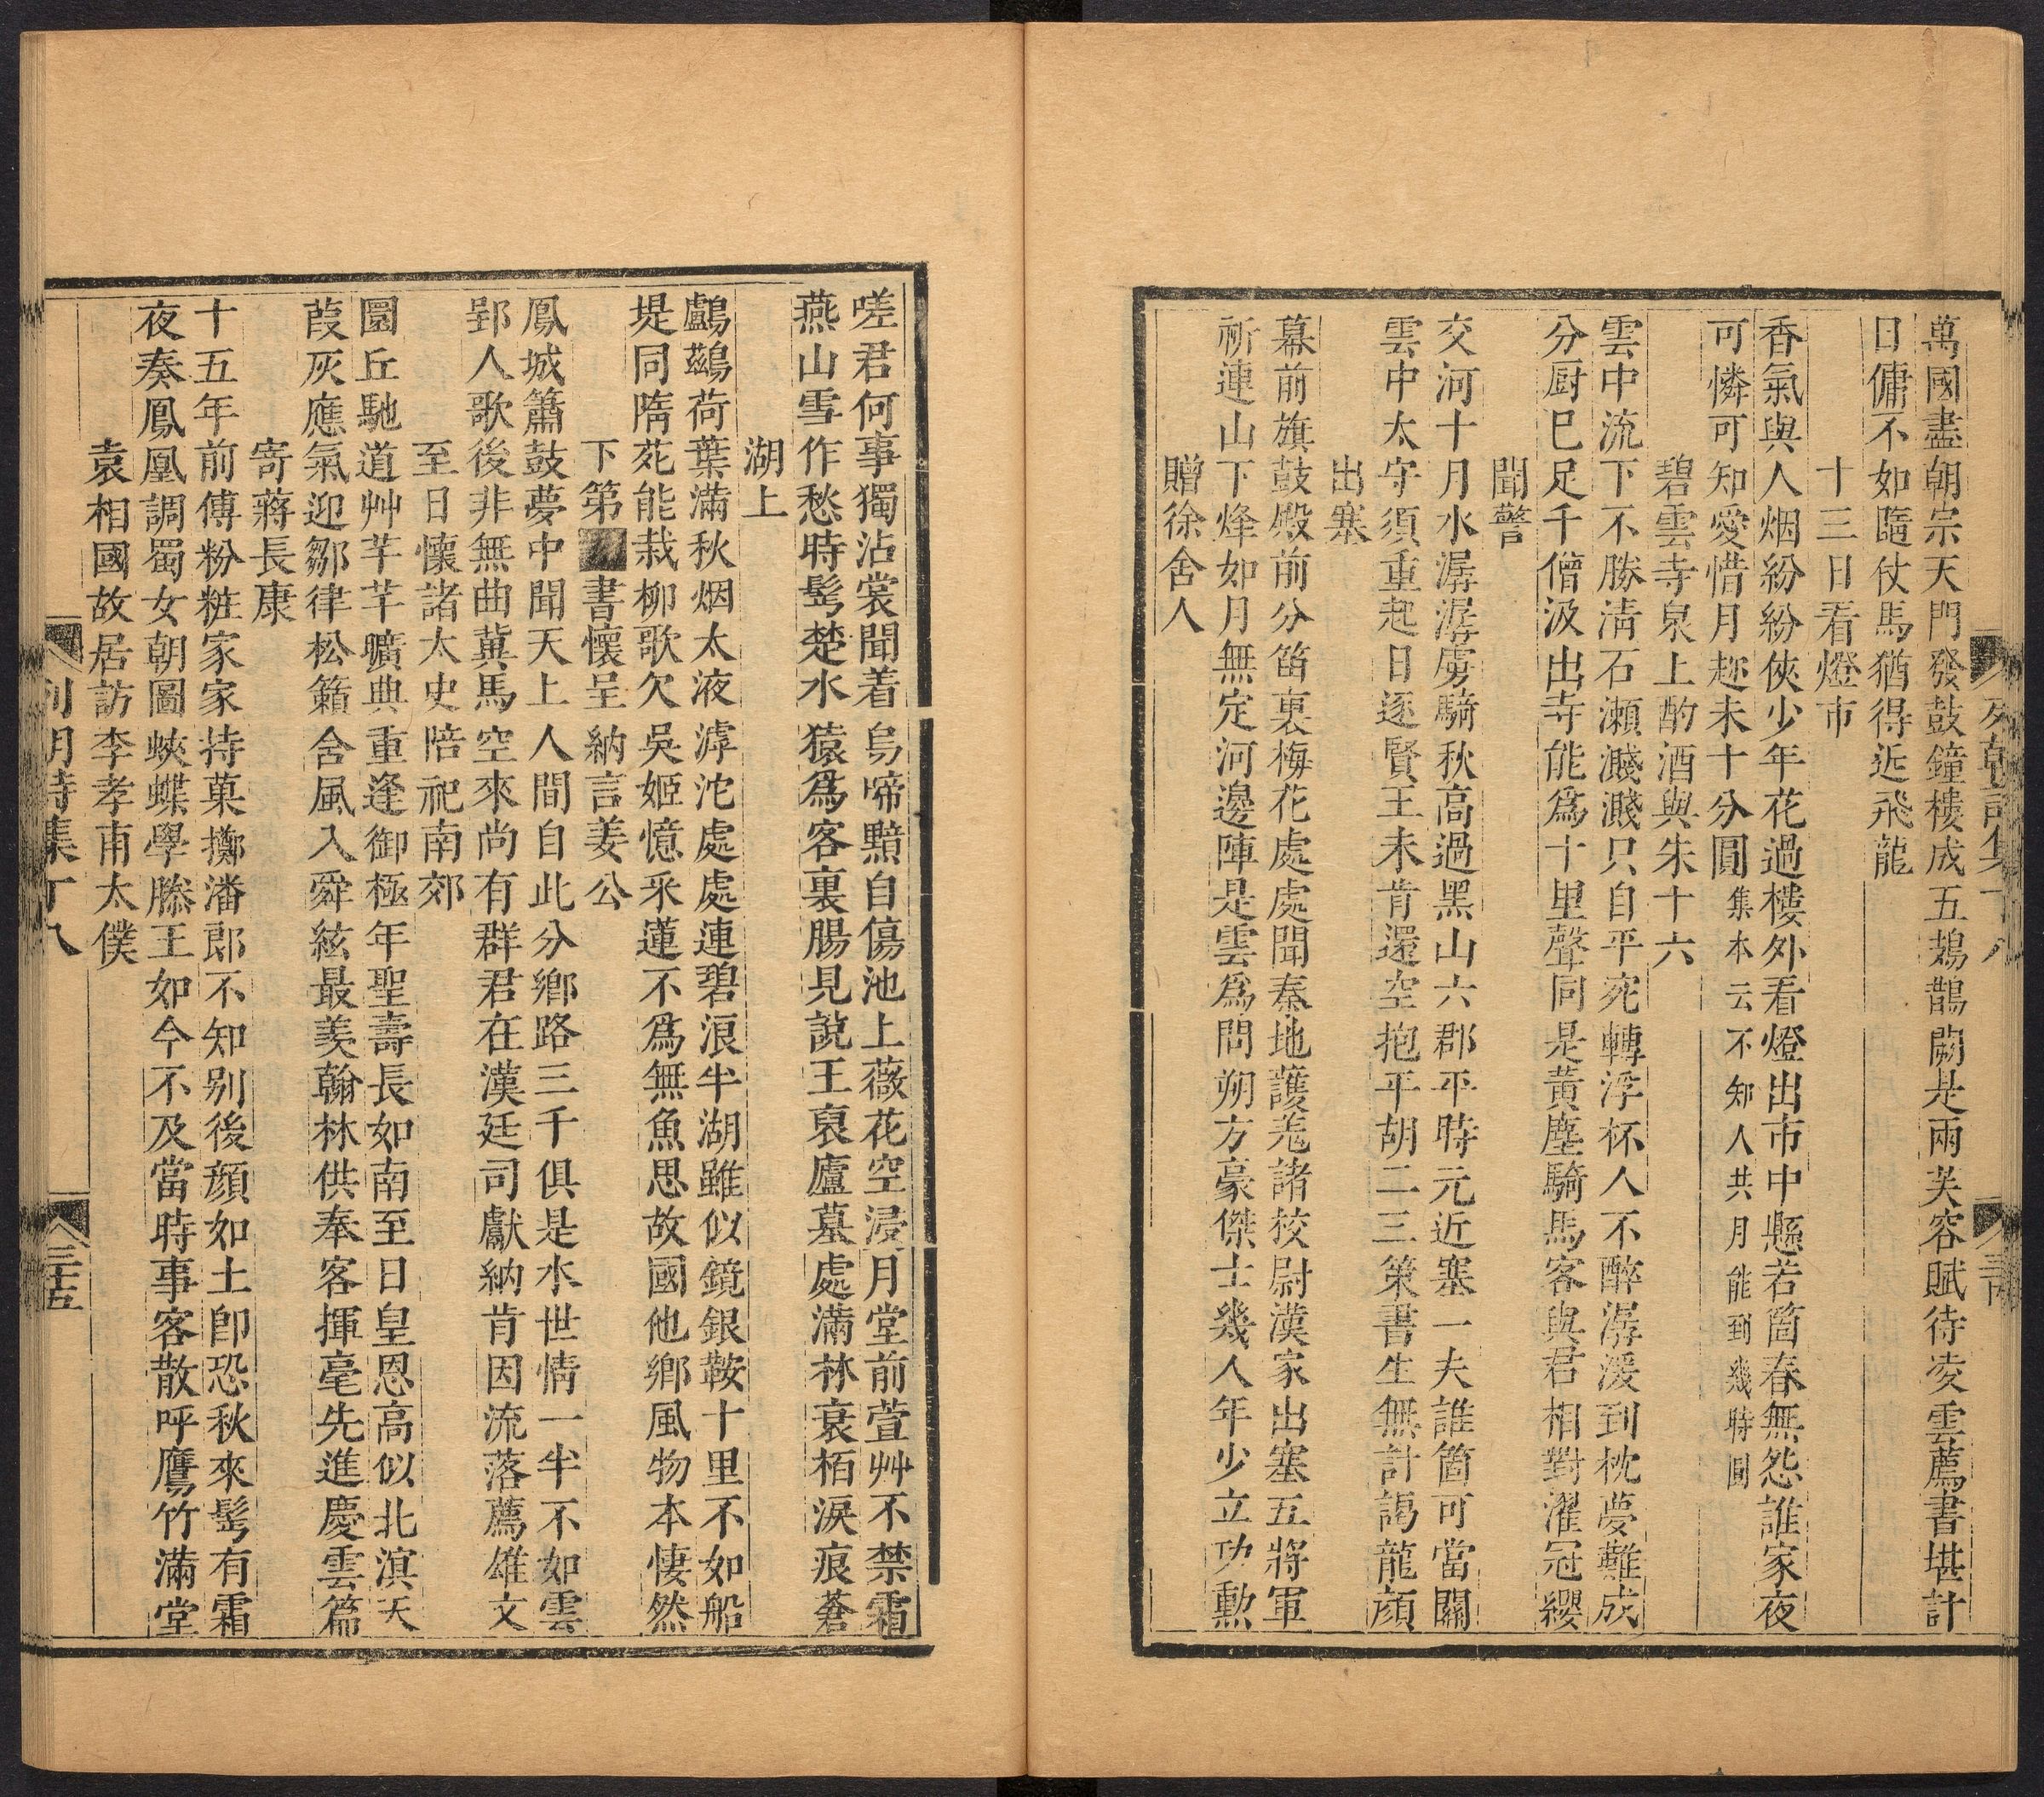 萬國盡朝宗天門發鼓鐘樓成五鳷鵲闕是兩芙容賦待凌雲薦書堪計
日傭不如隨仗馬猶得近飛龍
十三日看燈市
香氣與人烟紛紛俠少年花過樓外看燈出市中懸若箇春無怨誰家夜
可憐可知愛惜月趂未十分圓集本云不知人共月能到幾時圓
碧雲寺泉上酌酒與朱十六
雲中流下不勝清石瀨濺濺只自平宛轉浮杯人不醉潺湲到枕夢難成
分厨巳足千僧汲出寺能爲十里聲同是黃塵騎馬客與君相對濯冠纓
聞警
交河十月水潺潺虜騎秋高過黑山六郡平時元近塞一夫誰箇可當關
雲中太守須重起日逐賢王未肯還空抱平胡二三策書生無計謁龍顔
出塞
幕前旗鼓殿前分笛裏梅花處處聞秦地護羌諸校尉漢家出塞五將軍
祈連山下烽如月無定河邊陣是雲爲問朔方豪傑士幾人年少立功勲
贈徐舍人
列朝詩集丁八
三十四
嗟君何事獨沾裳聞着烏啼黯自傷池上薇花空浸月堂前萱艸不禁霜
燕山雪作愁時髩楚水猿爲客裏腸見說王裒廬墓處滿林衰栢淚痕蒼
湖上
鸕鷀荷葉滿秋烟太液滹沱處處連碧浪半湖雖似鏡銀鞍十里不如船
堤同隋苑能栽柳歌欠吳姬憶采蓮不爲無魚思故國他鄉風物本悽然
下第書懷呈納言姜公
鳳城簫鼓夢中聞天上人間自此分鄉路三千俱是水世情一半不如雲
郢人歌後非無曲冀馬空來尚有群君在漢廷司獻納肯因流落薦雄文
至日懷諸太史陪祀南郊
圜丘馳道艸芊芊曠典重逢御極年聖壽長如南至日皇恩高似北溟天
葭灰應氣迎鄒律松籟含風入舜絃最羨翰林供奉客揮毫先進慶雲篇
寄蔣長康
十五年前傅粉粧家家持菓擲潘郎不知别後顔如土卽恐秋來髩有霜
夜奏鳳凰調蜀女朝圖蛺蝶學滕王如今不及當時事客散呼鷹竹滿堂
袁相國故居訪李孝甫太僕
列朝詩集丁八
三十五